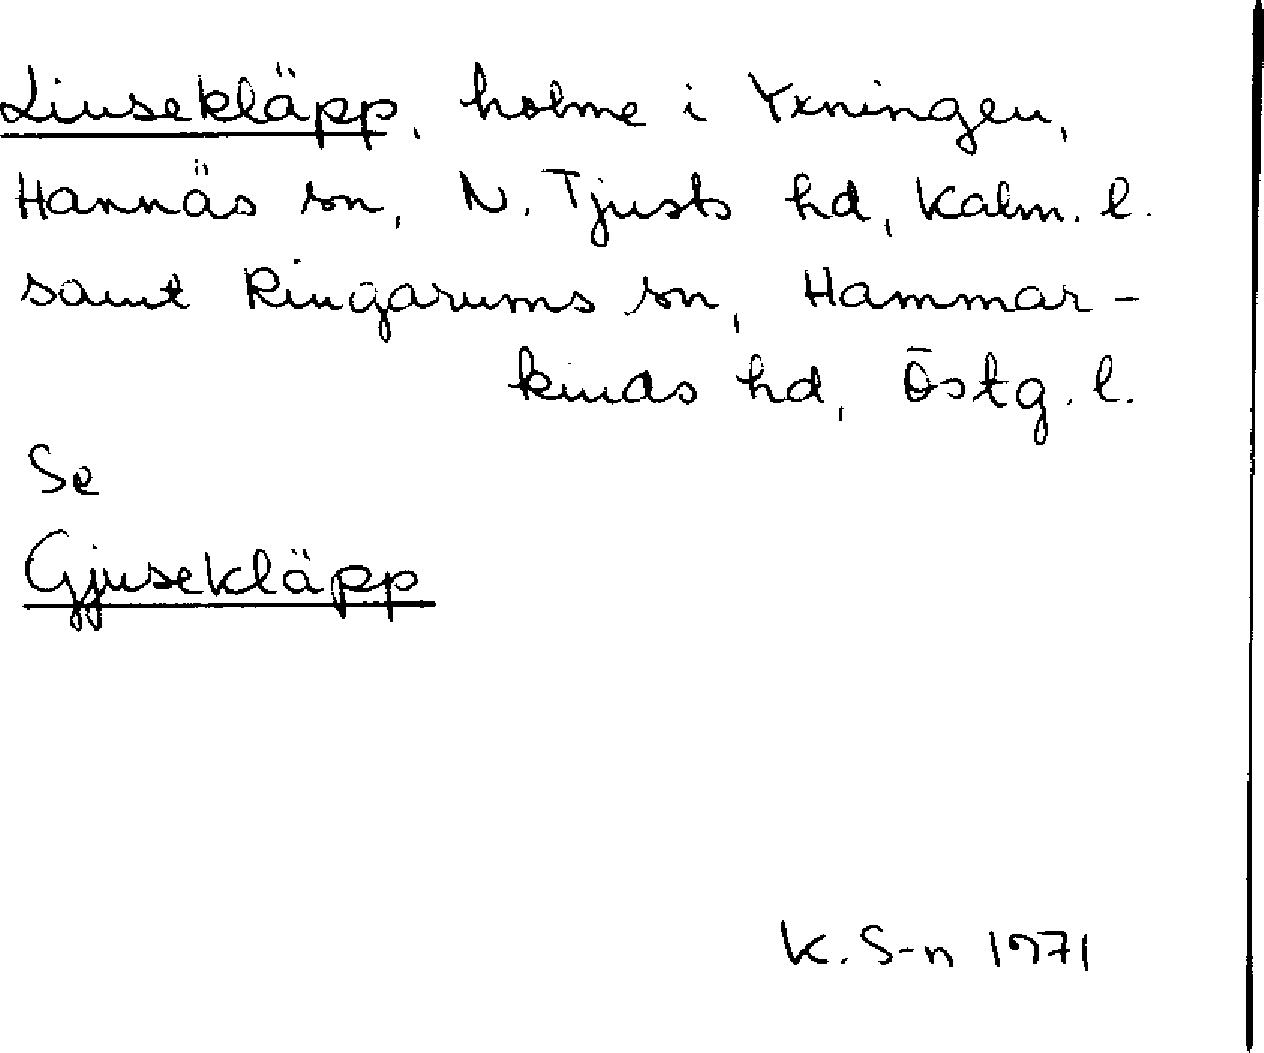 Liusekläpp, holme i Yxningen,
Hannäs sn, N. Tjusts hd, Kalm. l.
samt Ringarums sn, Hammar-
kinds hd, Östg. l.
Se
Gjusekläpp
K. S-n 1971